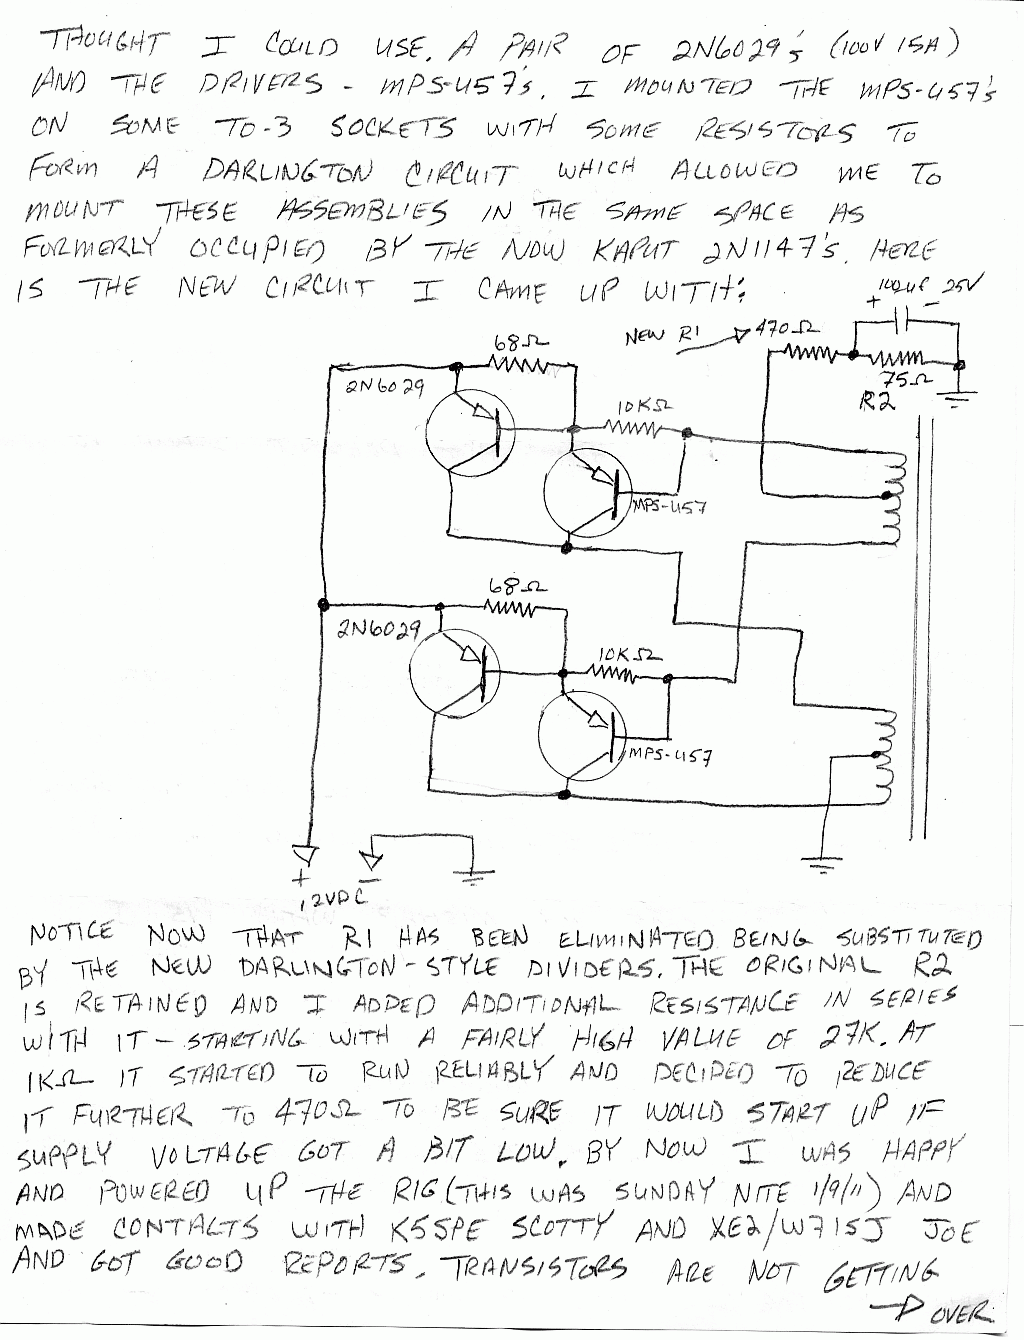 THOUGHT I COULD USE. A PAIR OF 2N6029's (100V 15A)
AND THE DRIVERS - MPS-U57's. I MOUNTED THE MPS-U57's
ON SOME TO-3 SOCKETS WITH SOME RESISTORS TO
FORM A DARLINGTON CIRCUIT WHICH ALLOWED ME TO
MOUNT THESE ASSEMBLIES IN THE SAME SPACE AS
FORMERLY OCCUPIED BY THE NOW KAPUT 2N1147's. HERE
IS THE NEW CIRCUIT I CAME UP WITH:
100uf 25V
+ −
NEW R1 470Ω
68Ω
75Ω
R2
2N6029
10KΩ
MPS-U57
68Ω
2N6029
10KΩ
MPS-U57
+ −
12VDC
NOTICE NOW THAT R1 HAS BEEN ELIMINATED BEING SUBSTITUTED
BY THE NEW DARLINGTON-STYLE DIVIDERS. THE ORIGINAL R2
IS RETAINED AND I ADDED ADDITIONAL RESISTANCE IN SERIES
WITH IT - STARTING WITH A FAIRLY HIGH VALUE OF 27K. AT
1KΩ IT STARTED TO RUN RELIABLY AND DECIDED TO REDUCE
IT FURTHER TO 470Ω TO BE SURE IT WOULD START UP IF
SUPPLY VOLTAGE GOT A BIT LOW. BY NOW I WAS HAPPY
AND POWERED UP THE RIG (THIS WAS SUNDAY NITE 1/9/11) AND
MADE CONTACTS WITH K5SPE SCOTTY AND XE2/W7ISJ JOE
AND GOT GOOD REPORTS. TRANSISTORS ARE NOT GETTING
OVER